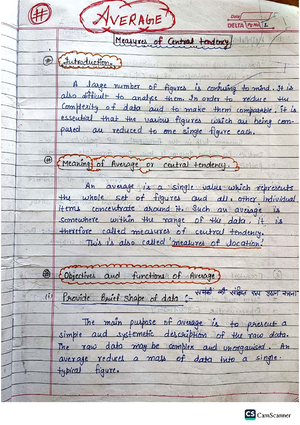 AVERAGE
Date/
DELTA Pg No. 1
Measures of Central tendency
Introduction
A large number of figures is confusing to mind. It is
also difficult to analyse them. In order to reduce the
complexity of data and to make them comparable, it is
essential that the various figures which are being com-
pared are reduced to one single figure each.
Meaning of Average or central tendency
An average is a single value which represents
the whole set of figures and all other individual
items concentrate around it. Such an average is
somewhere within the range of the data, it is
therefore called measures of central tendency.
This is also called 'measures of location'.
Objectives and functions of Average
(i) Provide Brief shape of data :-
The main purpose of average is to present a
simple and systemetic description of the raw data.
The raw data may be complex and unorganised. An
average reduces a mass of data into a single
typical figure.
CS CamScanner